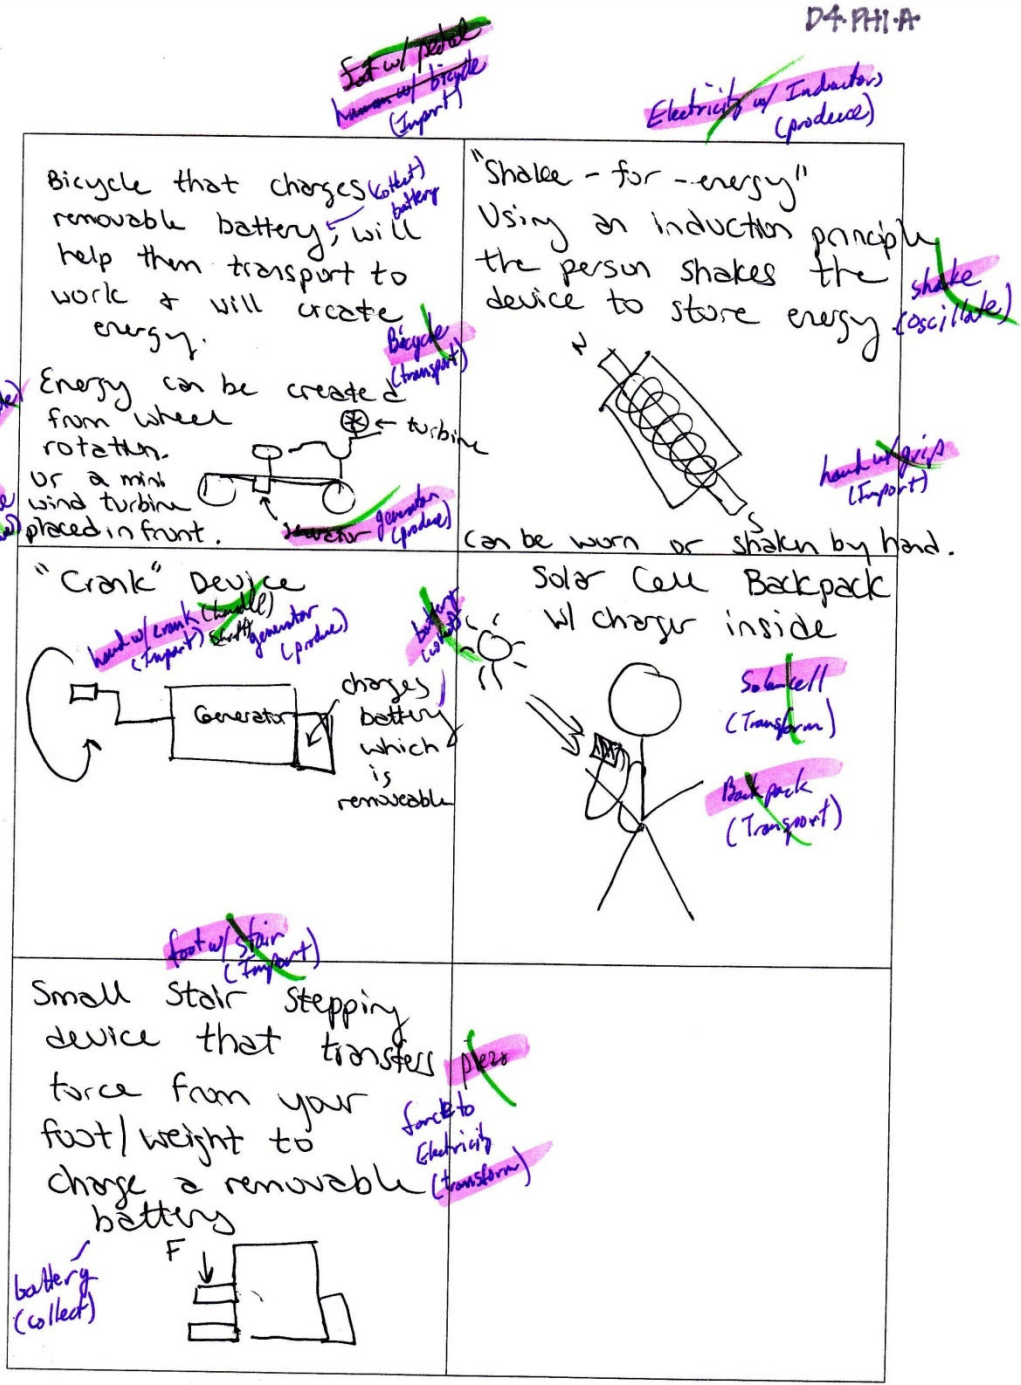 D4.PH1.A
foot w/ pedal
human w/ bicycle
(Import)
Electricity w/ Inductors
(produce)
Bicycle that charges
(collect)
battery
removable battery, will
help them transport to
work & will create
energy.
Bicycle
(transport)
Energy can be created
from wheel
rotation.
or a mini
wind turbine
placed in front.
← turbine
generator
(produce)
"Shake - for - energy"
Using an induction principle
the person shakes the
device to store energy.
shake
(oscillate)
N
S
hand w/ grip
(Import)
can be worn or shaken by hand.
"Crank" Device
hand w/ crank (handle)
(Import)
shaft
generator
(produce)
Generator
charges
battery
which
is
removeable
battery
(collect)
Solar Cell Backpack
w/ charger inside
Solar cell
(Transform)
Backpack
(Transport)
foot w/ stair
(Import)
Small Stair Stepping
device that transfers
force from your
foot/weight to
charge a removable
battery
piezo
force to
Electricity
(transform)
F
battery
(collect)